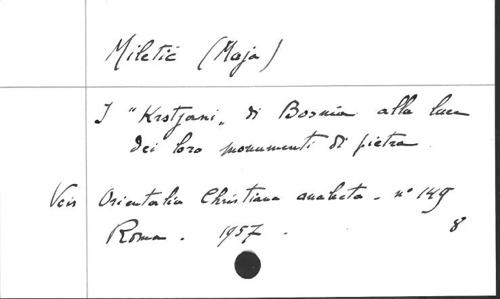 Miletić (Maja)
I "Krstjani" di Bosnia alla luce
dei loro monumenti di pietra.
Voir Orientalia Christiana analecta - n° 149
Roma - 1957. 8